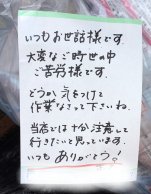 いつもお世話様です。
大変なご時世の中
ご苦労様です。
どうか気をつけて
作業なさって下さいね。
当店では十分注意して
行きたいと思っています。
いつもありがとう!